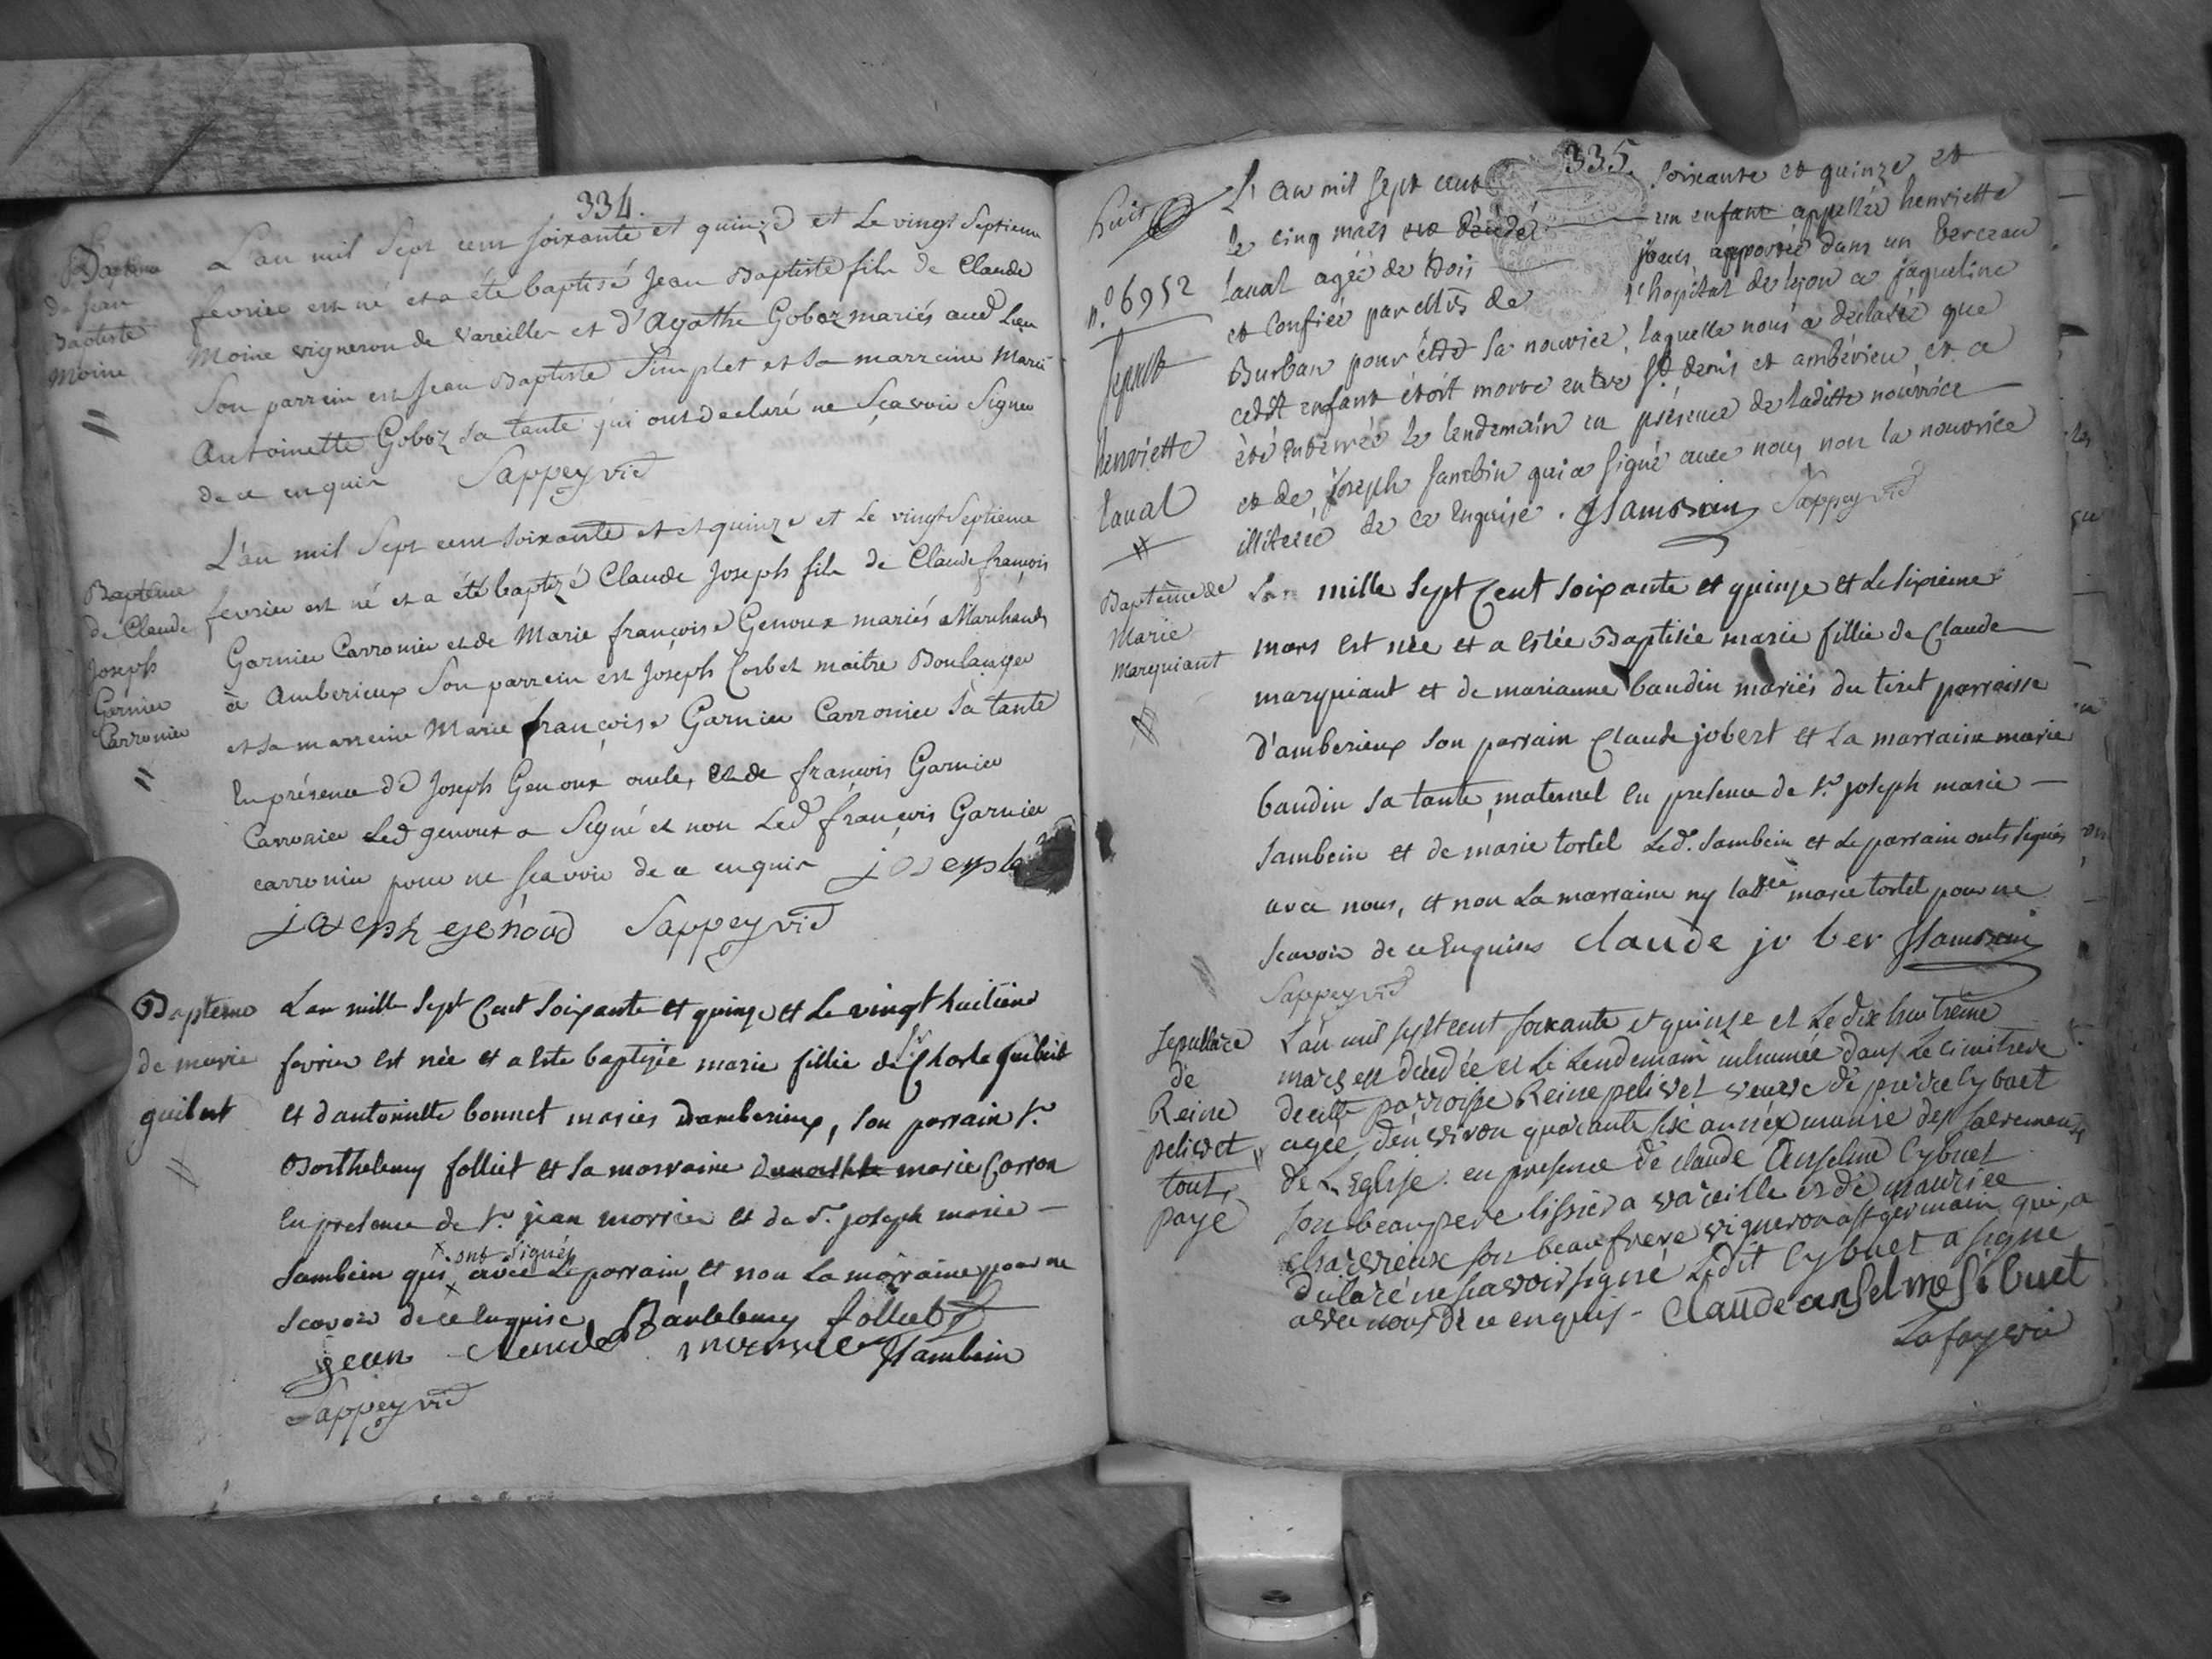 334.
Baptême
de Jean
Baptiste
Moine
L'an mil Sept cent soixante et quinze et Le vingt Septieme
fevrier est né et a été baptisé Jean Baptiste fils de Claude
Moine vigneron de Vareilles et d'Agathe Goboz mariés aud Lieu
Son parrein est Jean Baptiste Simplet et Sa marreine Marie
Antoinette Goboz Sa tante qui ont declaré ne Sçavoir Signer
de ce enquis Sappey vic
Baptême
de Claude
Joseph
Garnier
Carronier
L'an mil Sept cent soixante et et quinze et Le vingt Septieme
fevrier est né et a été baptizé Claude Joseph fils de Claude françois
Garnier Carronier et de Marie françoise Genoux mariés Marchands
à Amberieux Son parrein est Joseph Corbet maitre Boulanger
et Sa marreine Marie françoise Garnier Carronier Sa tante
En présence de Joseph Genoux oncle, et de françois Garnier
Carronier Led genoux a Signé et non Led françois Garnier
carronier pour ne sçavoir de ce enquis joseph
joseph genoud Sappey vic
Bapteme
de marie
guibert
L an mille Sept Cent Soixante et quinze et Le vingt huitiene
fevrier est née et a este baptizée marie fillie de Sr Charle guibert
et d'antoinette bonnet mariés d'amberieux, Son parrain Sr.
Barthelemy folliet et Sa marraine marie Carron
En presence de Sr. jean morrier et de Sr. joseph marie —
Sambein qui ont signés avec Le parrain et non La marraine pour ne
Scavoir de ce Enquise Bartelemy folliet
jean claude Jsambein
Sappey vic
335.
huit
n.o 6952
Sepult
henriette
laval
L'an mil Sept cent soixante et quinze et
le cinq mars est décédé un enfant appellée henriette
laval agée de trois jours, apportée dans un berceau
et confiée par Mrs de l'hopital de lyon a jaqueline
Burban pour être Sa nourrice, laquelle nous a déclaré que
cedit enfant étoit morte entre St. denis et ambérieu et a
été enterrée le lendemain en présence de laditte nourrice
et de joseph Sambin qui a Signé avec nous, non la nourrice
illiterée de ce Enquise. JSambein Sappey vic
Baptême de
Marie
Marquiant
Lan mille Sept Cent Soixante et quinze et Le Sixieme
mars est née et a estée Baptisée marie fillie de Claude
marquiant et de marianne baudin mariés du tiret parroisse
d'amberieux Son parrain Claude jobert et La marraine marie
baudin Sa tante maternel En presence de Sr. joseph marie —
Sambein et de marie tortel Led. Sambein et Le parrain onts Signés
avec nous, et non La marraine ny ladte marie tortel pour ne
Scavoir de ce Enquises claude jo ber JSambein
Sappey vic
Sepulture
de
Reine
pelivet
tout
paye
L'an mil sept cent soixante et quinze et Le dix huitieme
mars est décédée et Le Lendemain inhumée dans Le cimitiere
de cette parroisse Reine pelivet veuve de pierre Cybuet
agée d'environ quarante six années munie des sacrements
de L'Eglise. en presence de claude Anselme Cybuet
son beaupere tissier a vareille et de maurice
charvieux son beaufrere vigneron a st germain qui a
declaré ne scavoir signe Ledit Cybuet a signe
avec nous de ce enquis - Claude anselme Sibuet
Lafay vic